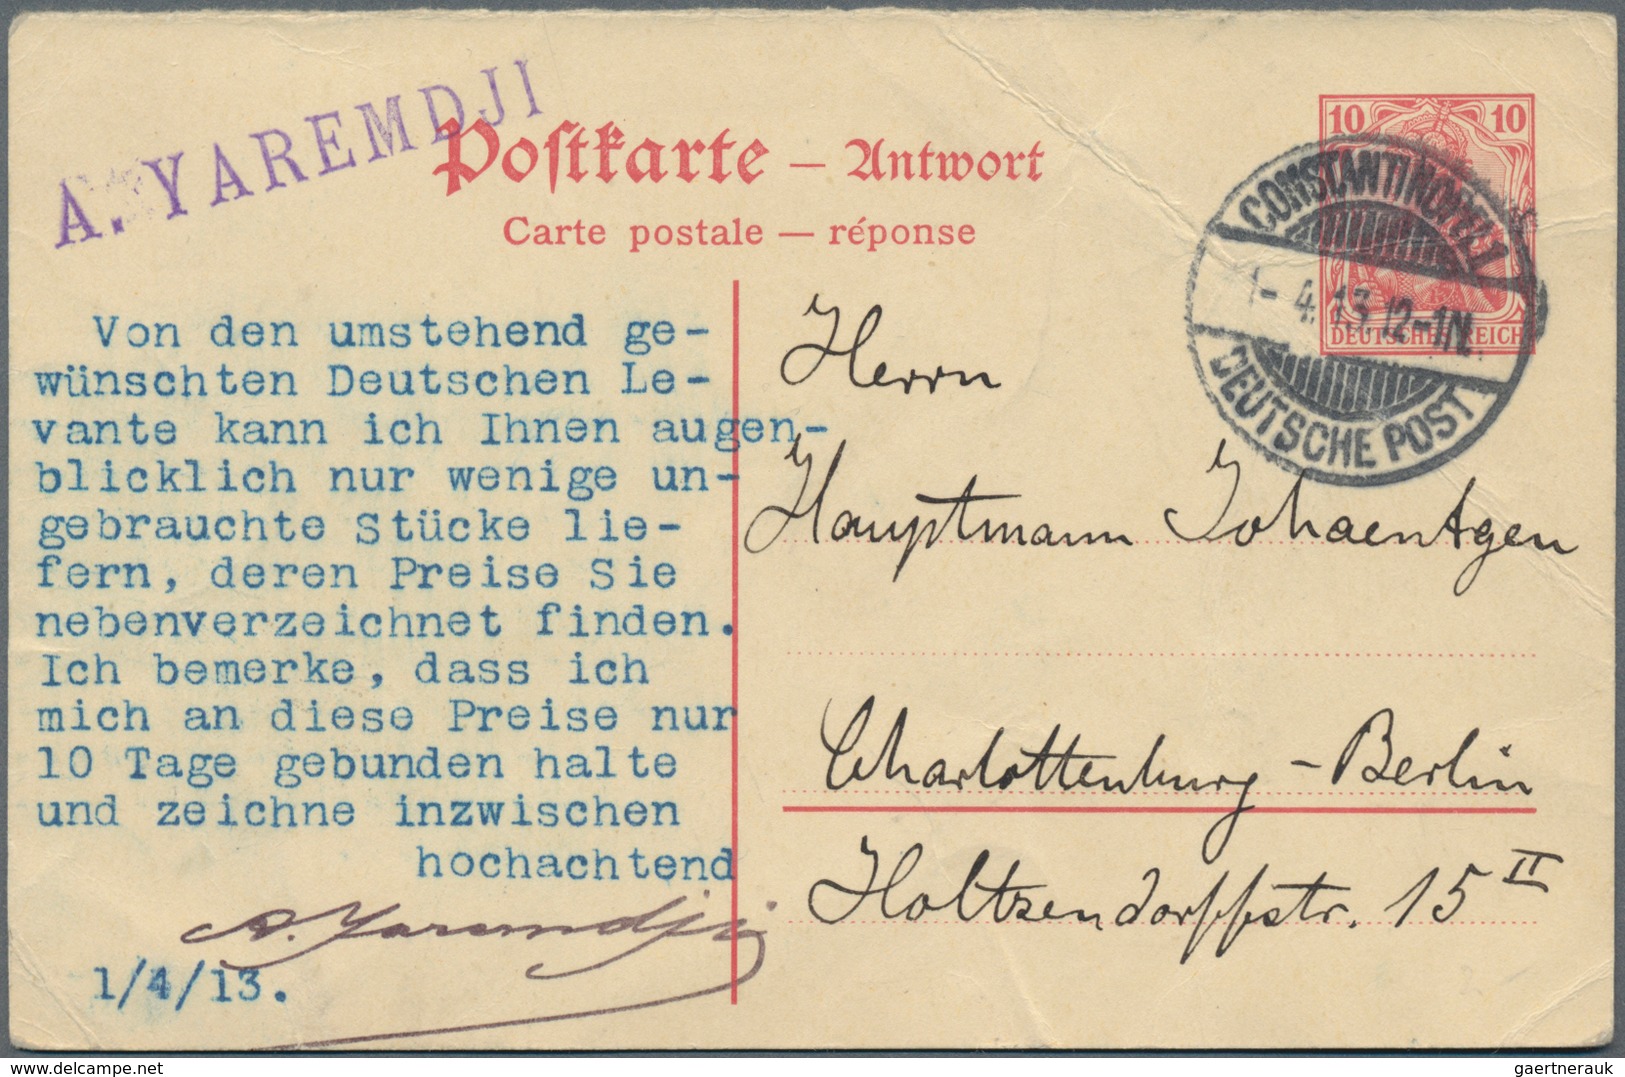 A. YAREMDJI
Postkarte — Antwort
Carte postale — réponse
10 10
DEUTSCHES REICH
CONSTANTINOPEL 1
1-4.13.12-1N.
DEUTSCHE POST
Von den umstehend ge-
wünschten Deutschen Le-
vante kann ich Ihnen augen-
blicklich nur wenige un-
gebrauchte Stücke lie-
fern, deren Preise Sie
nebenverzeichnet finden.
Ich bemerke, dass ich
mich an diese Preise nur
10 Tage gebunden halte
und zeichne inzwischen
hochachtend
A. Yaremdji
1/4/13.
Herrn
Hauptmann Johaentgen
Charlottenburg - Berlin
Holtzendorffstr. 15 II
gaertnerauk